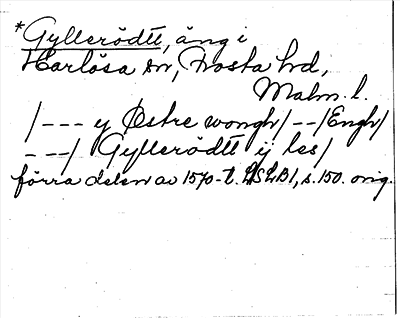 *Gyllerödtt, äng i
Harlösa sn, Frosta hd,
Malm. l.
/--- y Østre wongh/--/Engh/
---/ Gyllerödtt ij les/
förra delen av 1570-t. LSLB1, s. 150. orig.